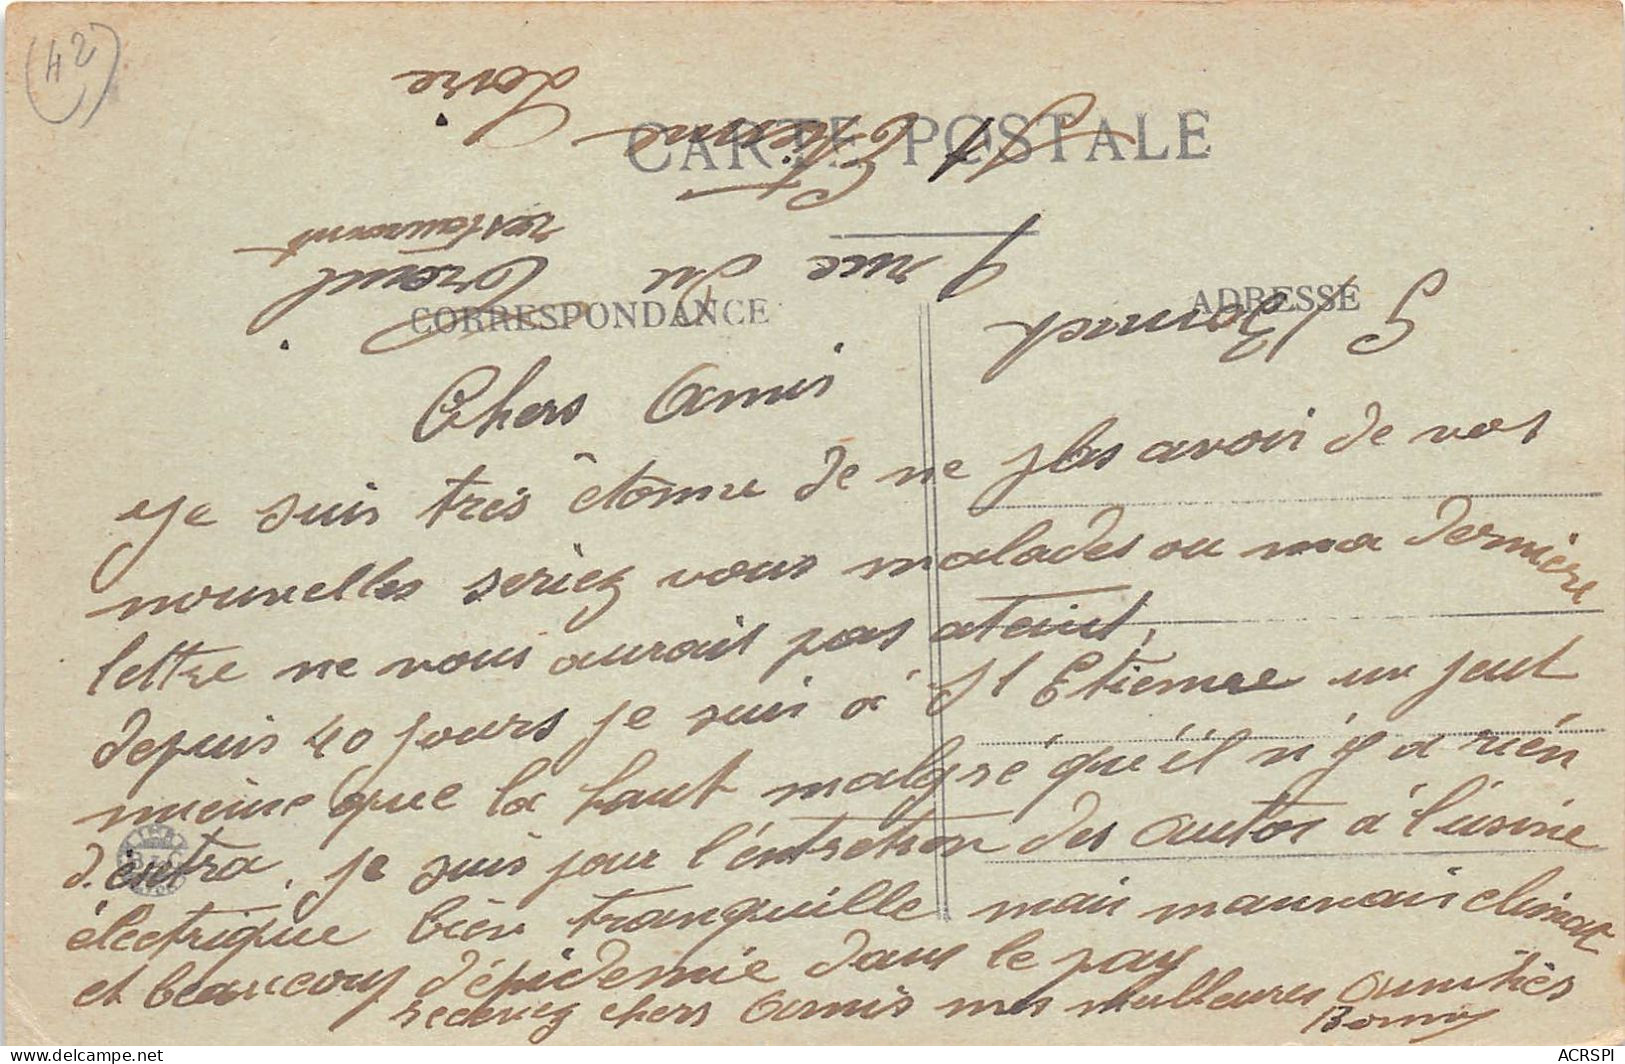 (42)
CARTE POSTALE
CORRESPONDANCE
ADRESSE
9 rue du Treuil
restaurant
St Etienne
Loire
Chers Amis
Je suis très étonné de ne plus avoir de vos
nouvelles seriez vous malades ou ma dernière
lettre ne vous aurait pas ateint,
depuis 40 jours je suis à St Etienne un peut
mieux que la haut malgré qu'il n'y a rien
d'extra, je suis pour l'entretien des autos à l'usine
électrique bien tranquille mais mauvais climat
et beaucoup d'épidemie dans le pay
recevez chers Amis mes meilleures amitiés
ACRSPI